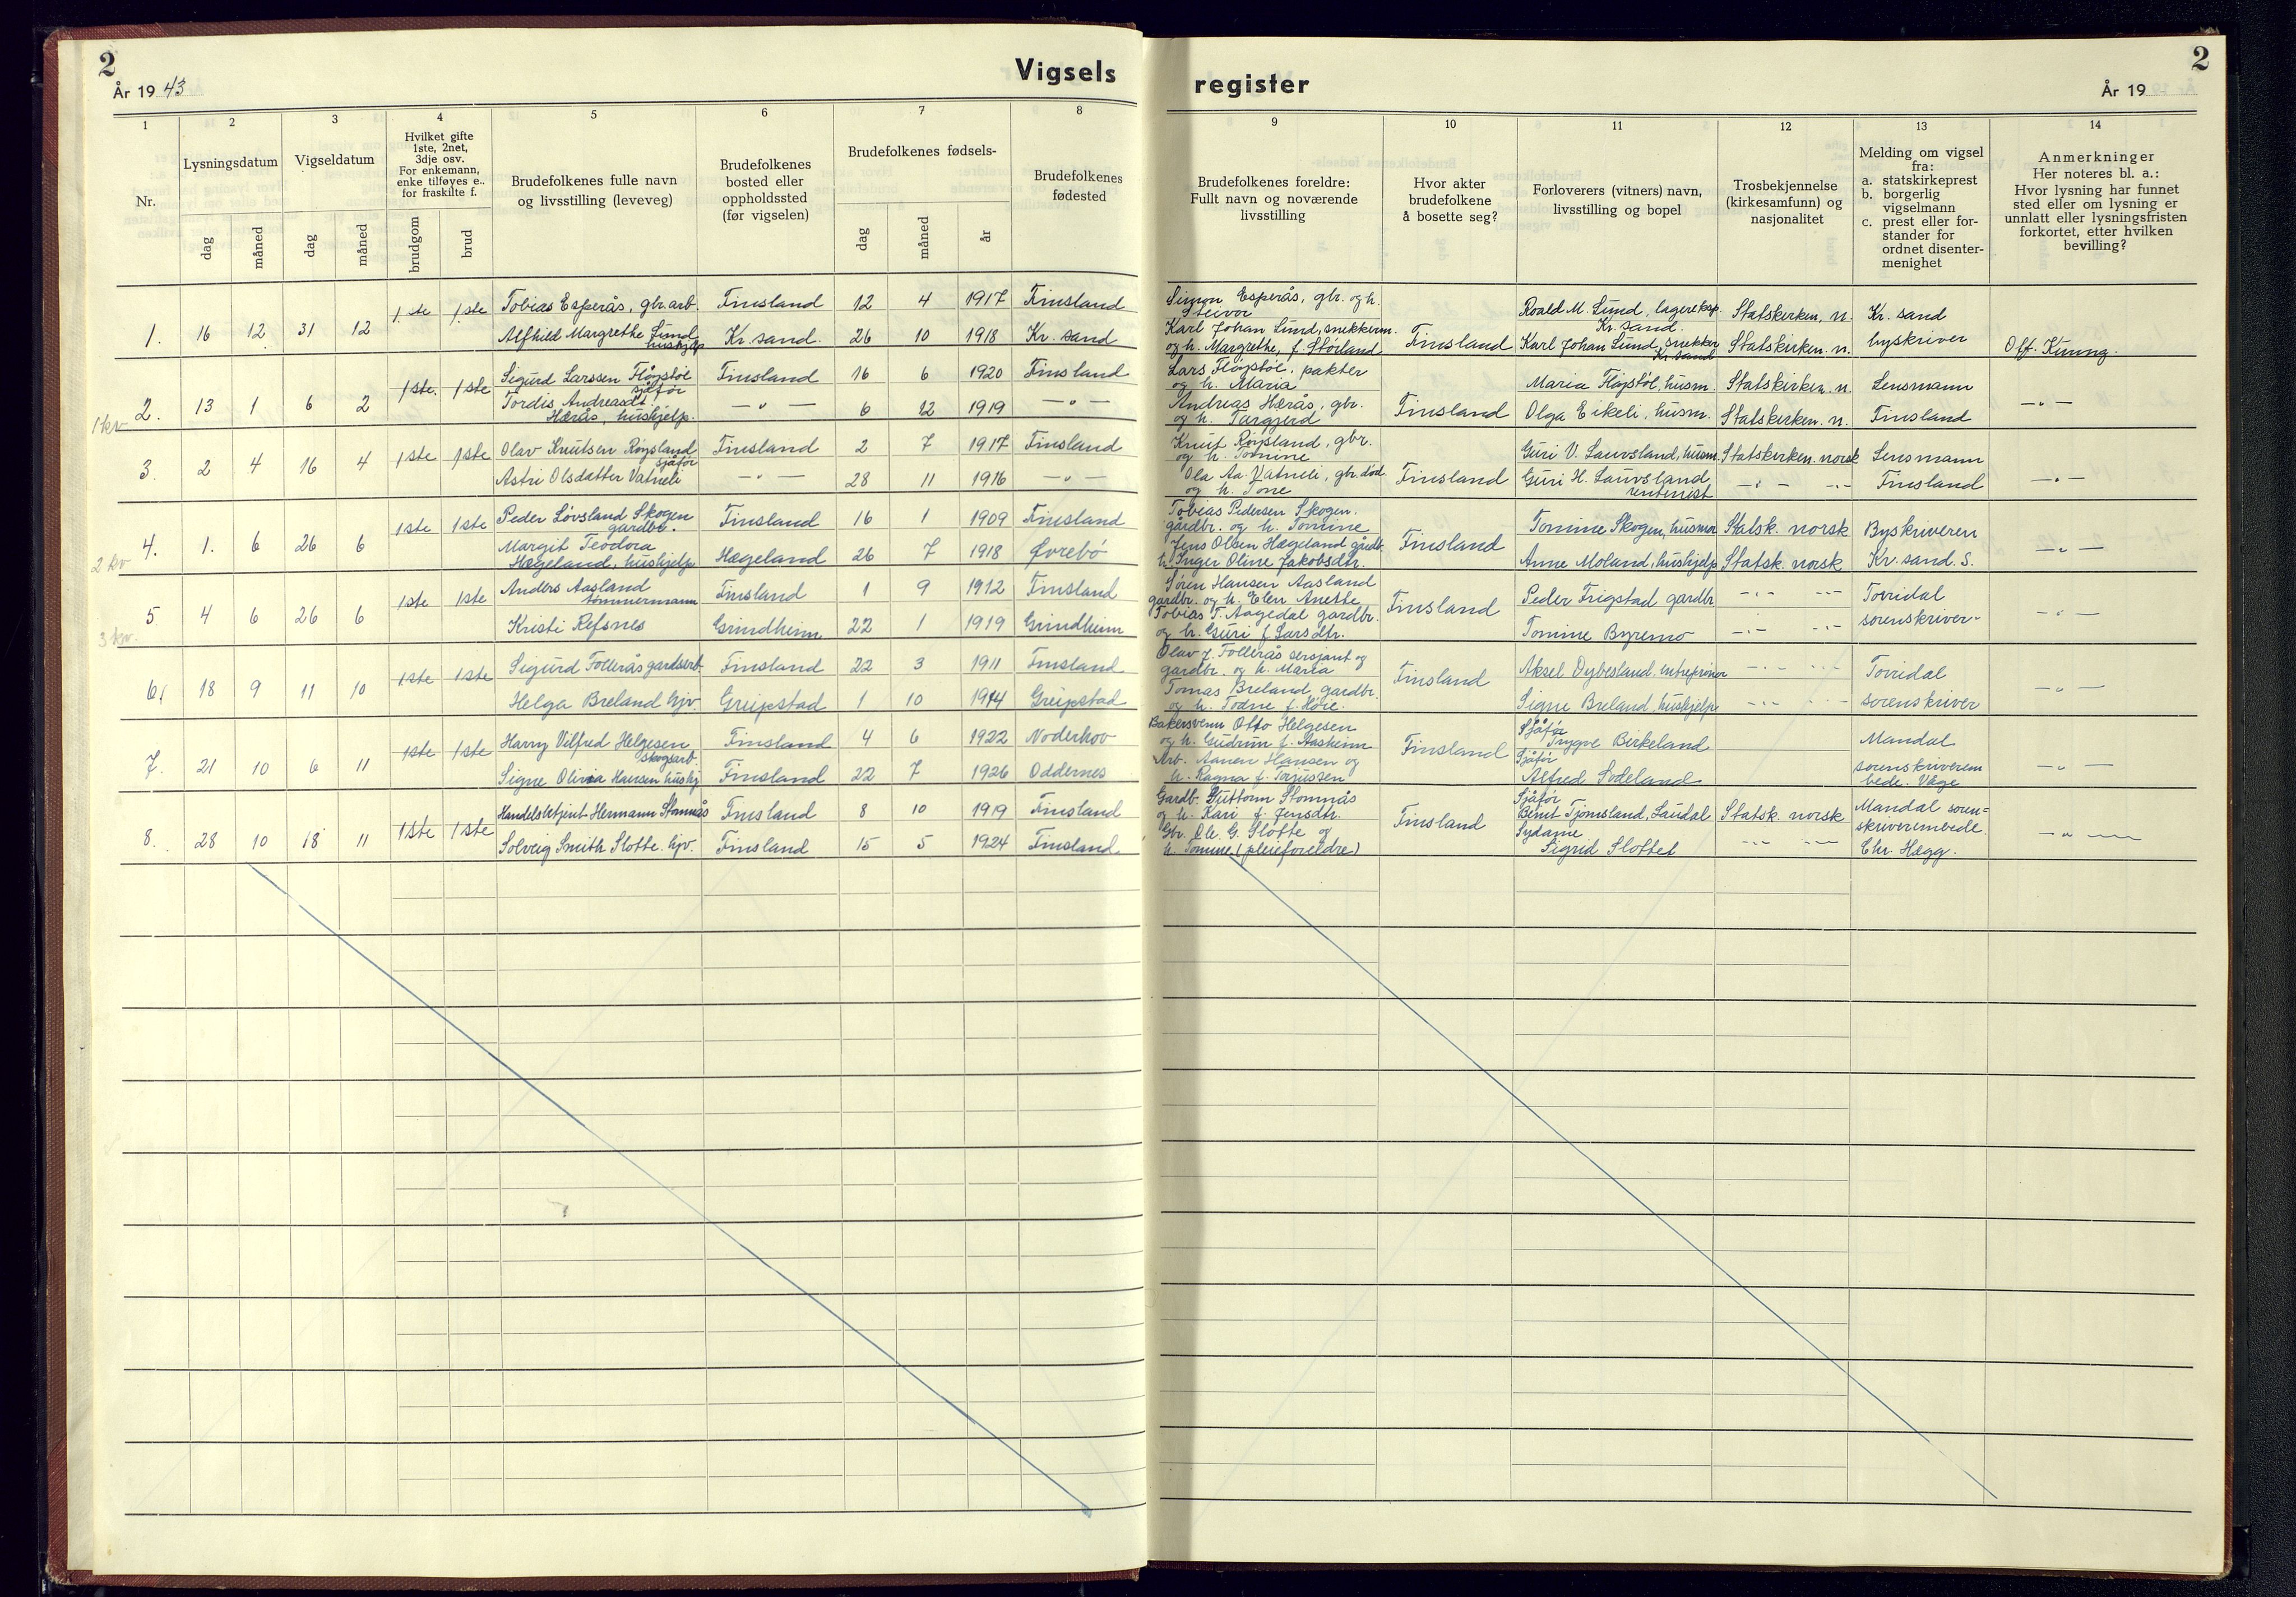 2
År 1943
Vigsels
register
År 19
2
1
2
3
4
5
6
7
8
9
10
11
12
13
14
Nr.
Lysningsdatum
dag
måned
Vigseldatum
dag
måned
Hvilket gifte
1ste, 2net,
3dje osv.
For enkemann,
enke tilføyes e..
for fraskilte f.
brudgom
brud
Brudefolkenes fulle navn
og livsstilling (leveveg)
Brudefolkenes
bosted eller
oppholdssted
(før vigselen)
Brudefolkenes fødsels-
dag
måned
år
Brudefolkenes
fødested
Brudefolkenes foreldre:
Fullt navn og noværende
livsstilling
Hvor akter
brudefolkene
å bosette seg?
Forloverers (vitners) navn,
livsstilling og bopel
Trosbekjennelse
(kirkesamfunn) og
nasjonalitet
Melding om vigsel
fra:
a. statskirkeprest
b. borgerlig
vigselmann
c. prest eller for-
stander for
ordnet disenter-
menighet
Anmerkninger
Her noteres bl. a.:
Hvor lysning har funnet
sted eller om lysning er
unnlatt eller lysningsfristen
forkortet, etter hvilken
bevilling?
1. 16 12 31 12 1ste 1ste
Tobias Esperås, gbr.arb. Finsland 12 4 1917 Finsland
Alfhild Margrethe Lund hushjelp Kr.sand. 26 10 1918 Kr. sand
Simon Esperås, gbr. og h.
Steivor
Karl Johan Lund, snekkerm.
og h. Margrethe, f. Störland
Finsland
Roald M. Lund, lagereksp.
Kr. sand.
Karl Johan Lund, snekker
Kr. sand
Statskirken, n.
Statskirken. n.
Kr. sand
byskriver
Off. Kunng.
1 kv
2. 13 1 6 2 1ste. 1ste
Sigurd Larssen Fløystøl
sjåfør
Finsland 16 6 1920 Finsland
Tordis Andreasdt.
Hærås, hushjelp.
— " — 6 12 1919 — " —
Lars Fløystøl, pakter
og h. Maria
Andreas Hærås, gbr.
og h. Targjerd
Finsland
Maria Fløystöl, husm.
Olga Eikeli, husm.
Statskirken. n.
Statskirken. n.
Lensmann
Finsland
— " —
3. 2 4 16 4 1ste 1ste
Olav Knutsen Røysland
sjåfør
Finsland 2 7 1917 Finsland
Astri Olsdatter Vatneli — " — 28 11 1916 — " —
Knut Røysland, gbr.
og h. Tomine
Ola Aa. Vatneli, gbr. död
og h. Tone
Finsland
Guri V. Lauvsland, husm.
Guri H. Lauvsland
rentenist
Statskirken. norsk
— " — — " —
Lensmann
Finsland
— " —
2 kv
4. 1. 6 26 6 1ste 1ste
Peder Lövsland Skogen
gardbr.
Finsland 16 1 1909 Finsland
Margit Teodora
Hægeland, hushjelp
Hægeland 26 7 1918 Øvrebö
Tobias Pedersen Skogen.
gårdbr. og h. Tomine
Jens Olsen Hægeland gårdb.
h. Inger Oline Jakobsdtr.
Finsland
Tomine Skogen, husmor
Anne Moland, hushjelp
Statsk. norsk
Statsk. norsk
Byskriveren
Kr. sand. S.
— " —
3 kv.
5 4 6 26 6 1ste 1ste
Anders Aasland
tømmermann
Finsland 1 9 1912 Finsland
Kristi Refsnes Grindheim 22 1 1919 Grindheim
Søren Hansen Aasland
gardbr. og h. Elen Anette
Tobias T. Aagedal gardbr.
og h. Guri f. Larsdtr.
Finsland
Peder Frigstad gardbr
Tomine Byremo
— " — — " —
— " — — " —
Torridal
sorenskriver-
— " —
6. 18 9 11 10 1ste 1ste
Sigurd Follerås gardsarb. Finsland 22 3 1911 Finsland
Helga Breland hjv. Greipstad 1 10 1914 Greipstad
Olav J. Follerås sersjant og
gardbr. og h. Maria
Tomas Breland gardbr.
og h. Todne f. Høie.
Finsland
Aksel Dybesland, entreprenør
Signe Breland, hushjelp
— " — — " —
— " — — " —
Torridal
sorenskriver
— " —
7. 21 10 6 11 1ste 1ste
Harry Vilfred Helgesen
skogsarb.
Finsland 4 6 1922 Noderhov
Signe Olivia Hansen hushj. Finsland 22 7 1926 Oddernes
Bakersvenn Otto Helgesen
og h. Gudrun f. Aasheim
Arb. Aanen Hansen og
h. Ragna f. Terjussen
Finsland
Sjåfør
Trygve Birkeland
Sjåfør
Alfred Sodeland
Mandal
sorenskriverem
bede. Våge
— " —
8. 28 10 18 11 1ste 1ste
Handelsbetjent Hermann Stomnås Finsland 8 10 1919 Finsland
Solveig Smith Slotte. hjv. Finsland 15 5 1924 Finsland
Gardb. Guttorm Stomnås
og h. Kari f. Jensdtr.
Gbr. Ole G. Slotte og
h. Tomine (pleieforeldre)
Finsland
Sjåfør
Bent Tjomsland, Laudal
Sydame
Sigrid Slottet
Statsk. norsk
— " — — " —
Mandal soren=
skriverembede.
Chr. Hægg.
— " —